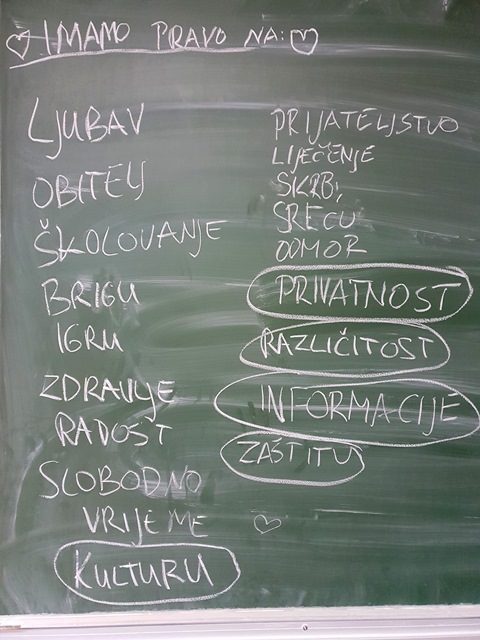 IMAMO PRAVO NA:
LJUBAV
OBITELJ
ŠKOLOVANJE
BRIGU
IGRU
ZDRAVLJE
RADOST
SLOBODNO
VRIJEME
KULTURU
PRIJATELJSTVO
LIJEČENJE
SKRB,
SREĆU
ODMOR
PRIVATNOST
RAZLIČITOST
INFORMACIJE
ZAŠTITU